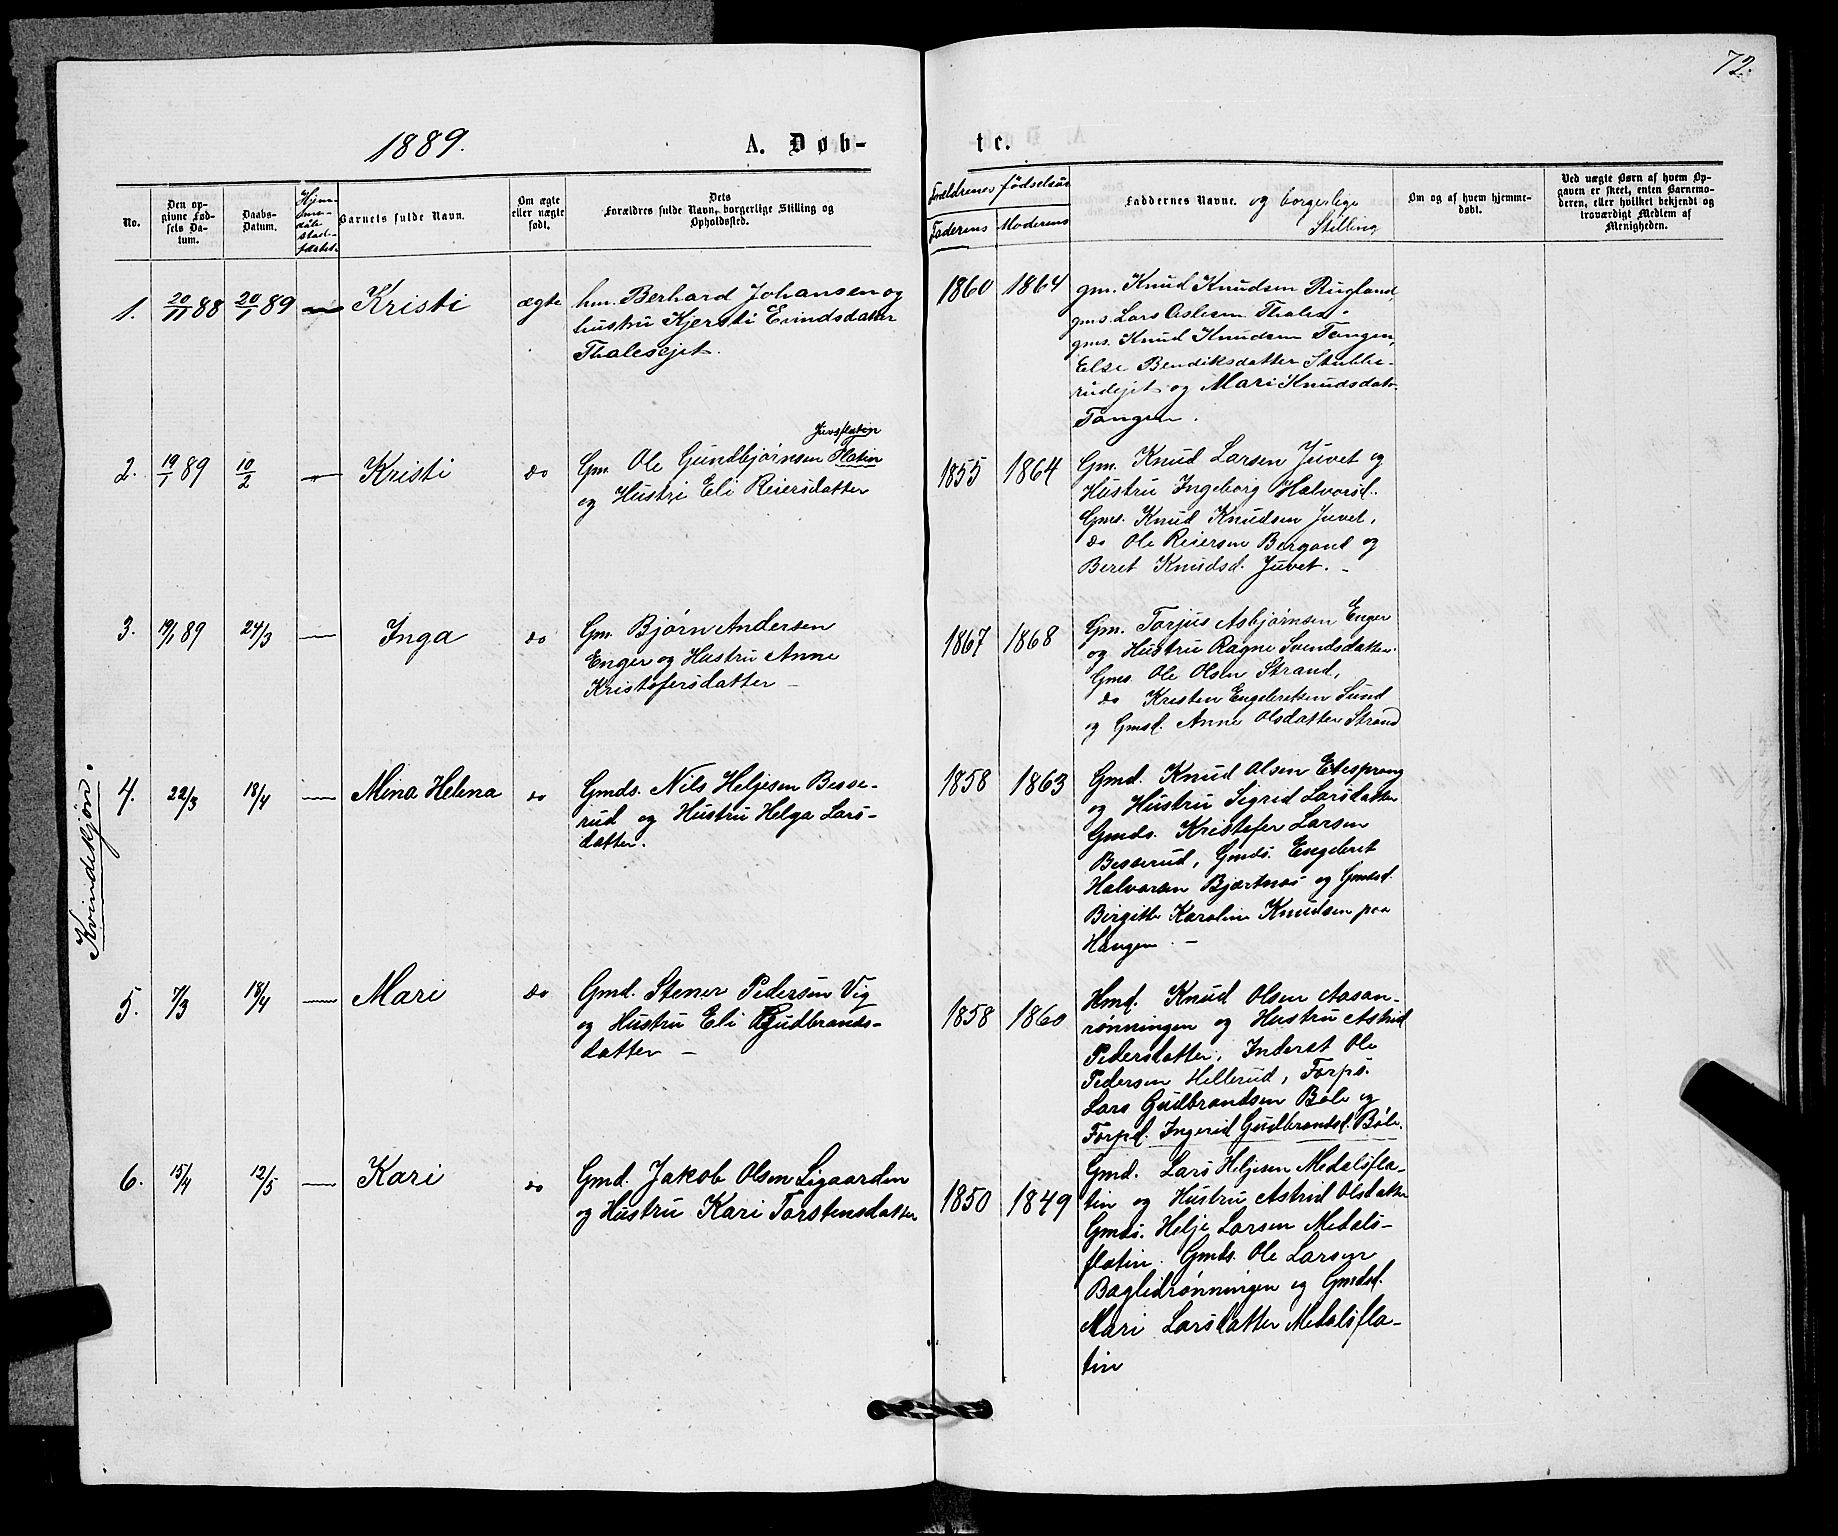 72.
1889.
A. Døb-
te.
No.
Den opgivne Fødsels Datum.
Daabs-Datum.
Barnets fulde Navn.
Om ægte eller uægte født.
Dets Forældres fulde Navn, borgerlige Stilling og Opholdssted.
Forældrenes fødselsår
Faderens
Moderens
Faddernes Navne. og borgerlige Stilling
Om og af hvem hjemmedøbt.
Ved uægte Børn af hvem Opgaven er skeet, enten Barnemoderen, eller hvilket bekjendt og troværdigt Medlem af Menigheden.
Kvindekjøn.
1. 20/11 88 20/1 89 — Kristi ægte
hm. Berhard Johansen og
hustru Kjersti Eivindsdatter
Thalesejet.
1860 1864
gm. Knud Knudsen Rugland,
gms. Lars Aslesen Thalen.
gms. Knud Knudsen Tangen,
Else Bendiksdatter Stubbe-
rudejet og Mari Knudsdatr.
Tangen.
2. 19/1 89 10/2 — Kristi do
Juvsflatin
Gm. Ole Gundbjørnsen Flatin
og Hustri Eli Reiersdatter
1855 1864
Gm. Knud Larsen Juvet og
Hustru Ingeborg Halvorsd.
Gms. Knud Knudsen Juvet,
do Ole Reiersen Bergand og
Beret Knudsd. Juvet. -
3. 19/1 89 24/3 — Inga do
Gm. Bjørn Andersen
Enger og Hustru Anne
Kristofersdatter -
1867 1868
Gm. Torjus Asbjørnsen Enger
og Hustru Ragne Svendsdatter.
Gms. Ole Olsen Strand,
do Kristen Engebretsen Sund
og Gmsd. Anne Olsdatter Strand
4. 22/3 18/4 — Mina Helena do
Gmds. Nils Heljesen Besse-
rud og Hustru Helga Lars-
datter.
1858 1863
Gmd. Knud Olsen Elsprong
og Hustru Sigrid Larsdatter
Gmds. Kristofer Larsen
Besserud, Gmds. Engebret
Halvorsen Bjørtnæs og Gmdsd.
Birgitte Karoline Knudsen paa
Haugen. -
5. 7/3 18/4 — Mari do
Gmd. Stener Pedersen Vig
og Hustru Eli Gudbrands-
datter -
1858 1860
Hmd. Knud Olsen Aasan-
rønningen og Hustru Astrid
Pedersdatter, Inderst Ole
Pedersen Hellerud, Forps.
Lars Gudbrandsen Bøle og
Forpd. Ingerid Gudbrandsd. Bøle.
6. 15/4 12/5 — Kari do
Gmd. Jakob Olsen Ligaarden
og Hustru Kari Torstensdatter
1850 1849
Gmd. Lars Heljesen Medalsfla-
tin og Hustru Astrid Olsdatter
Gmds. Helje Larsen Medals-
flatin. Gmds. Ole Larsen
Baglidrønningen og Gmdsd.
Mari Larsdatter Medalsfla-
tin